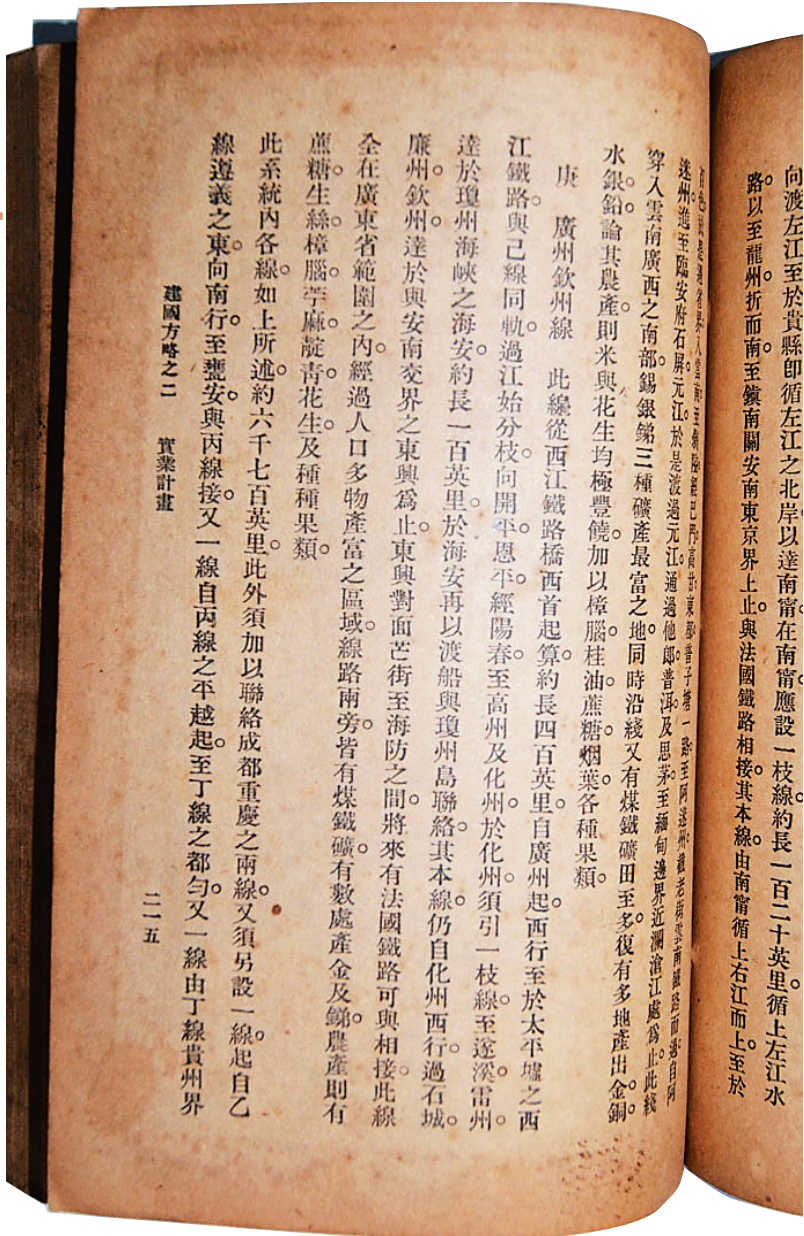 向渡左江至於貴縣卽循左江之北岸以達南甯在南甯應設一枝線約長一百二十英里循上左江水
路以至龍州折而南至鎮南關安南東京界上止與法國鐵路相接其本線由南甯循上右江而上至於
遂州進至臨安府石屏元江於是渡過元江通過他郎普洱及思茅至緬甸邊界近瀾滄江處爲止此綫
穿入雲南廣西之南部錫銀銻三種礦產最富之地同時沿綫又有煤鐵礦田至多復有多地產出金銅
水銀鉛論其農產則米與花生均極豐饒加以樟腦桂油蔗糖烟葉各種果類
庚 廣州欽州線 此線從西江鐵路橋西首起算約長四百英里自廣州起西行至於太平墟之西
江鐵路與己線同軌過江始分枝向開平恩平經陽春至高州及化州於化州須引一枝線至遂溪雷州
達於瓊州海峽之海安約長一百英里於海安再以渡船與瓊州島聯絡其本線仍自化州西行過石城
廉州欽州達於與安南交界之東興爲止東興對面芒街至海防之間將來有法國鐵路可與相接此線
全在廣東省範圍之內經過人口多物產富之區域線路兩旁皆有煤鐵礦有數處產金及銻農產則有
蔗糖生絲樟腦苧麻靛靑花生及種種果類
此系統內各線如上所述約六千七百英里此外須加以聯絡成都重慶之兩線又須另設一線起自乙
線遵義之東向南行至甕安與丙線接又一線自丙線之平越起至丁線之都勻又一線由丁線貴州界
建國方略之二 實業計畫
二一五